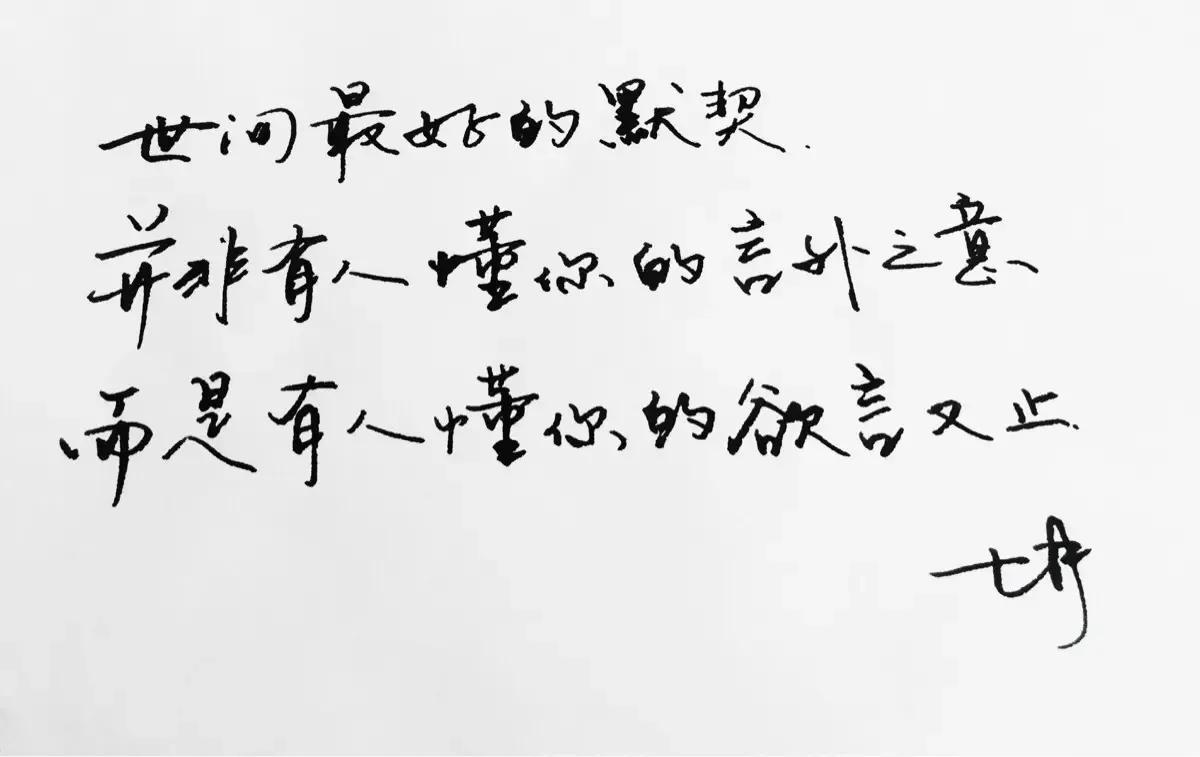 世间最好的默契.
并非有人懂你的言外之意
而是有人懂你的欲言又止.
七